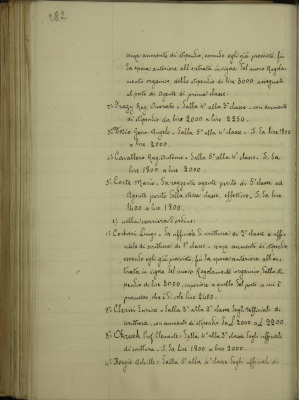 282
senza aumento di stipendio, essendo egli già provvisto, fin
da epoca anteriore all'entrata in vigore del nuovo Regola-
mento organico, dello stipendio di lire 3000 assegnato
al posto di Agente di prima classe.
2° Rag. Onorato - Dalla 4ª alla 3ª classe - con aumento
di stipendio da lire 2000 a lire 2250.
3° Gian Angelo - Dalla 5ª alla 4ª classe - S. da lire 1800
a lire 2000.
4° Cavallero Rag. Antonio - Dalla 5ª alla 4ª classe - S. da
lire 1800 a lire 2000.
5° Conte Mario - Da reggente agente perito di 5ª classe ad
Agente perito della stessa classe, effettivo, S. da lire
1600 a lire 1800.
c) nella carriera d'ordine:
1° Luigi - Da ufficiale di scrittura di 2ª classe a uffi-
ciale di scrittura di 1ª classe - senza aumento di stipendio
essendo egli già provvisto, fin da epoca anteriore all'en-
trata in vigore del nuovo Regolamento organico, dello sti-
pendio di lire 3000, superiore a quello del posto a cui è
promosso che è di sole lire 2400.
2° Clerici Enrico - Dalla 3ª alla 2ª classe degli ufficiali di
scrittura, con aumento di stipendio da L. 2000 a L. 2200.
3° Prof. Clemente - Dalla 4ª alla 3ª classe degli ufficiali
di scrittura - S. da lire 1800 a lire 2000.
4° Borgia Achille - Dalla 5ª alla 4ª classe degli ufficiali di